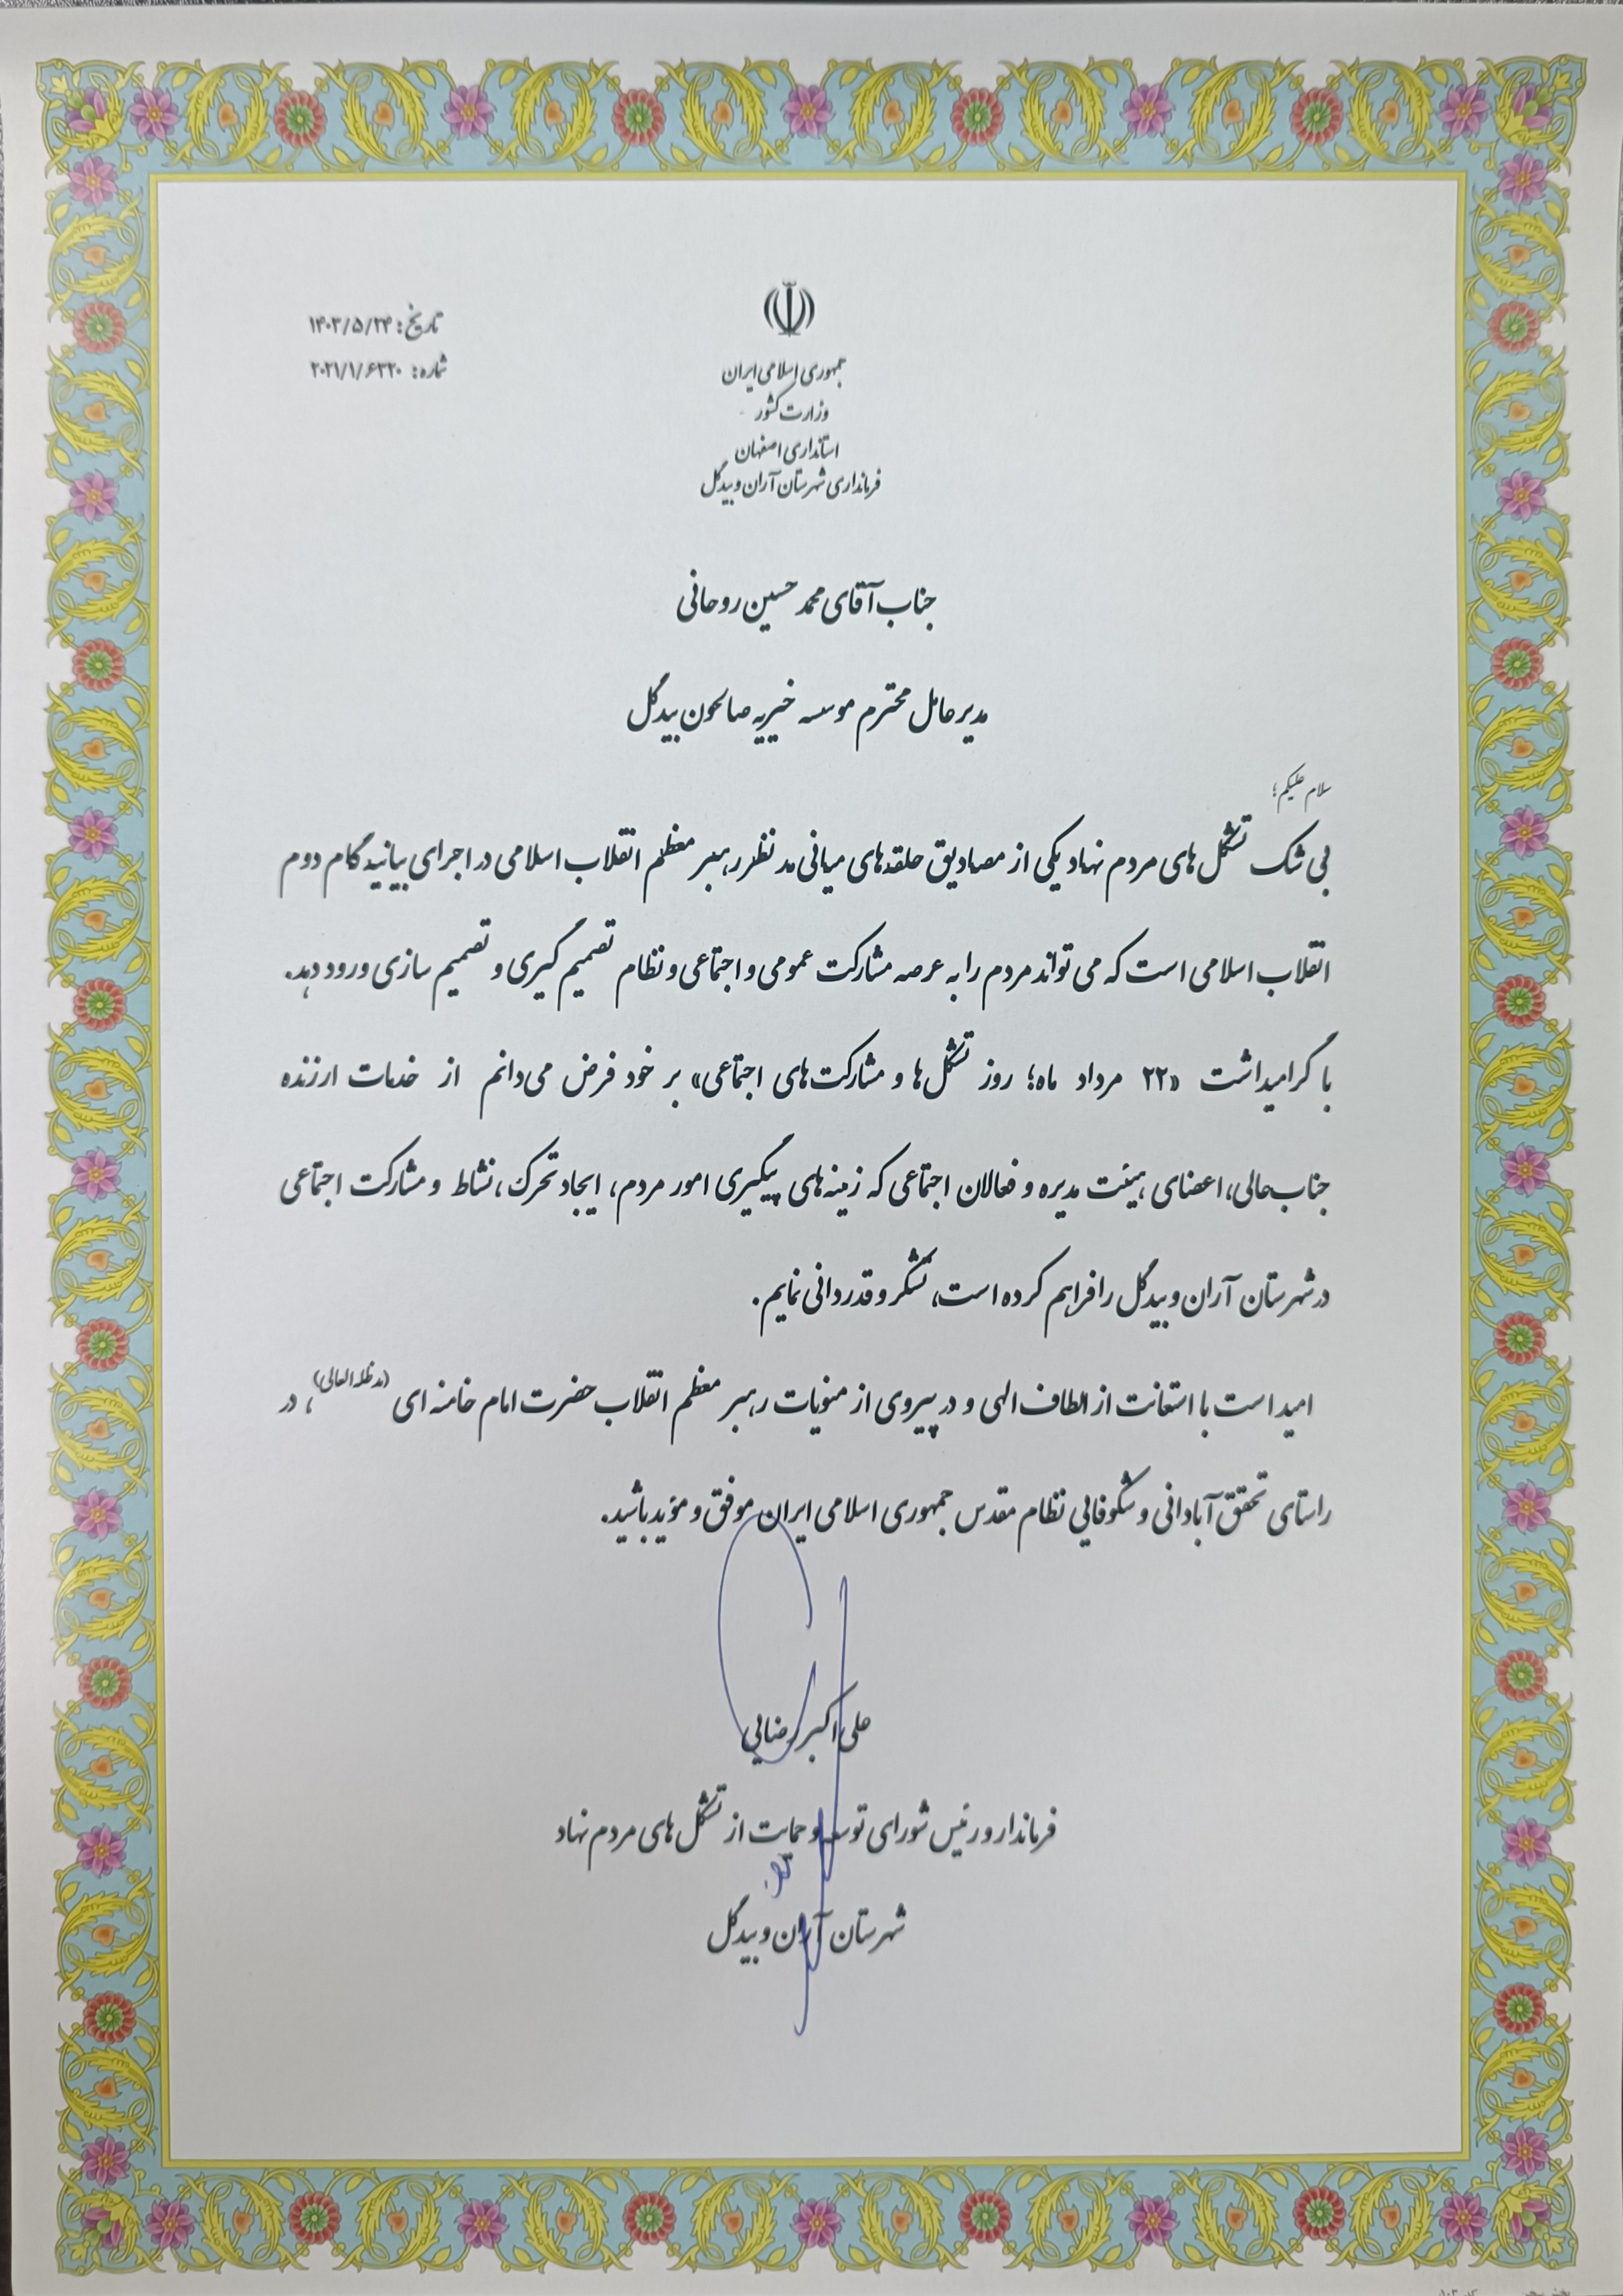 تاریخ: ۱۴۰۳/۵/۲۴
شماره: ۲۰۲۱/۱/۶۳۲۰
جمهوری اسلامی ایران
وزارت کشور
استانداری اصفهان
فرمانداری شهرستان آران و بیدگل
جناب آقای محمد حسین روحانی
مدیر عامل محترم موسسه خیریه صالحون بیدگل
سلام علیکم؛
بی شک تشکل های مردم نهاد یکی از مصادیق حلقه‌های میانی مد نظر رهبر معظم انقلاب اسلامی در اجرای بیانیه گام دوم
انقلاب اسلامی است که می تواند مردم را به عرصه مشارکت عمومی و اجتماعی و نظام تصمیم گیری و تصمیم سازی ورود دهد.
با گرامیداشت «۲۲ مرداد ماه؛ روز تشکل‌ها و مشارکت‌های اجتماعی» بر خود فرض می‌دانم از خدمات ارزنده
جناب‌عالی، اعضای هیئت مدیره و فعالان اجتماعی که زمینه‌های پیگیری امور مردم، ایجاد تحرک، نشاط و مشارکت اجتماعی
در شهرستان آران و بیدگل را فراهم کرده است، تشکر و قدردانی نمایم.
امید است با استعانت از الطاف الهی و در پیروی از منویات رهبر معظم انقلاب حضرت امام خامنه ای (مدظله العالی)، در
راستای تحقق آبادانی و شکوفایی نظام مقدس جمهوری اسلامی ایران موفق و موید باشید.
علی اکبر رضایی
فرماندار و رئیس شورای توسعه و حمایت از تشکل های مردم نهاد
شهرستان آران و بیدگل